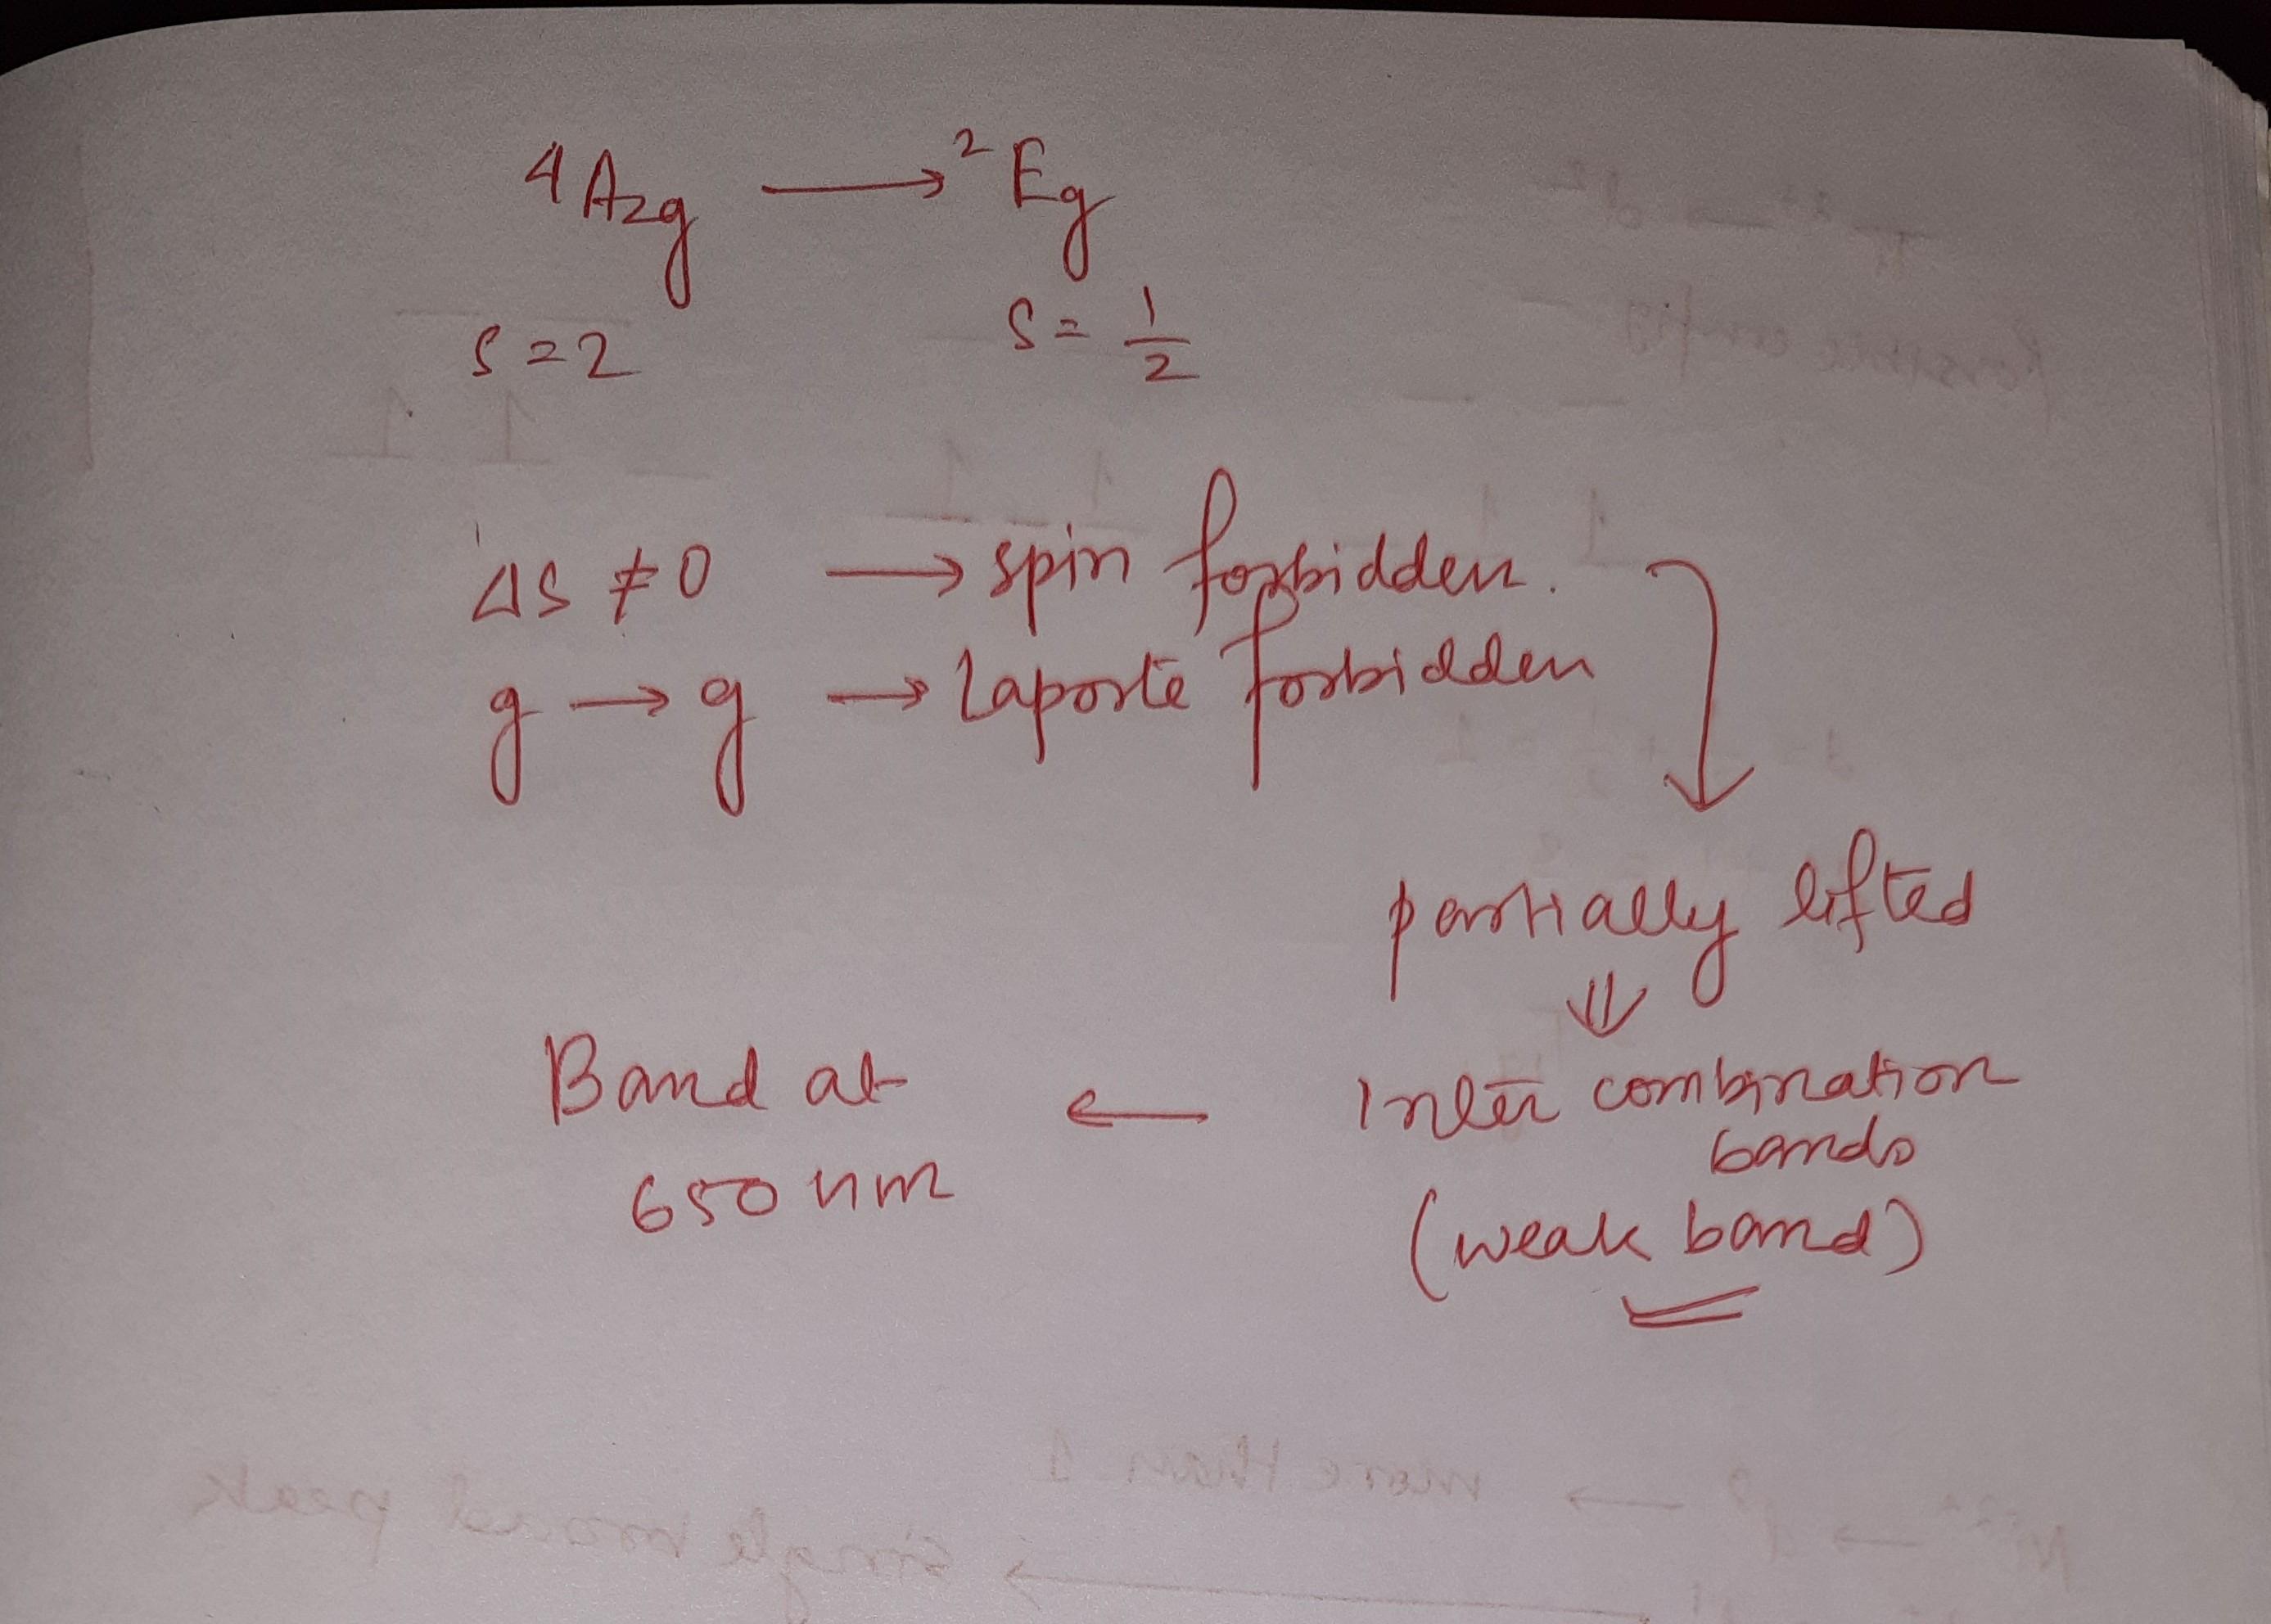 ⁴A₂g → ²Eg
S = 2 S = 1/2
ΔS ≠ 0 → spin forbidden.
g → g → Laporte forbidden
partially lifted
⇓
Inter combination
bands
(weak band)
←
Band at
650 nm